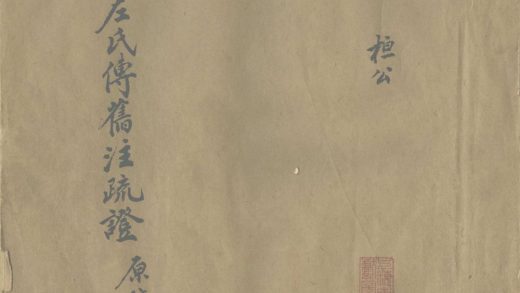 桓公
左氏傳舊注疏證 原